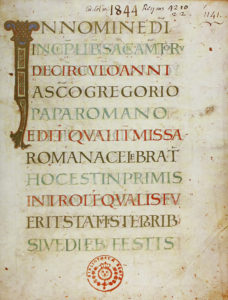 1844
1141.
IN NOMINE DI
INCP LIB SACAMTR
DE CIRCULO ANNI
A SCO GREGORIO
PAPA ROMANO
EDIT QUALIT MISSA
ROMANA CELEBRAT
HOC EST IN PRIMIS
INTROIT QUALIS FU
ERIT STATIS TEPORIB
SIVE DIEB FESTIS